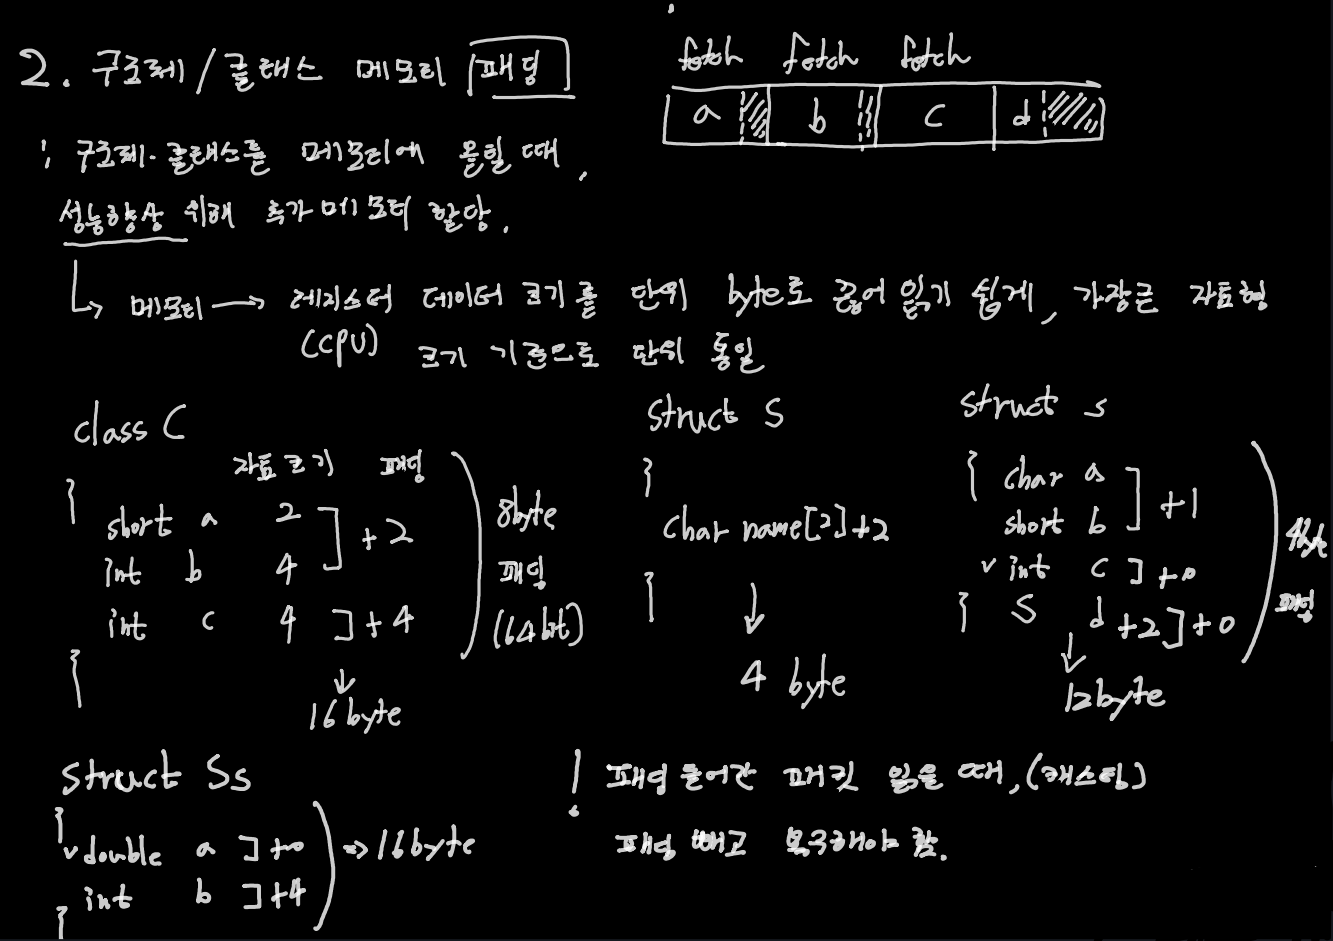 2. 구조체/클래스 메모리 패딩
fetch fetch fetch
a b c d
: 구조체·클래스를 메모리에 올릴 때,
성능향상 위해 추가 메모리 할당.
↳ 메모리 → 레지스터 데이터 크기를 단위 byte로 끊어 읽기 쉽게, 가장큰 자료형
(CPU) 크기 기준으로 단위 통일
class C
자료크기 패딩
{
short a 2
int b 4 ] +2
int c 4 ] +4
}
8byte
패딩
(64bit)
↓
16byte
struct S
{
char name[2]+2
}
↓
4 byte
struct s
{ char a
short b ] +1
v int c ] +0
} S d +2 ] +0
4byte
패딩
↓
12byte
struct Ss
{
v double a ] +0
int b ] +4
}
=> 16byte
! 패딩 들어간 패킷 읽을 때, (캐스팅)
패딩 빼고 복구해야 함.